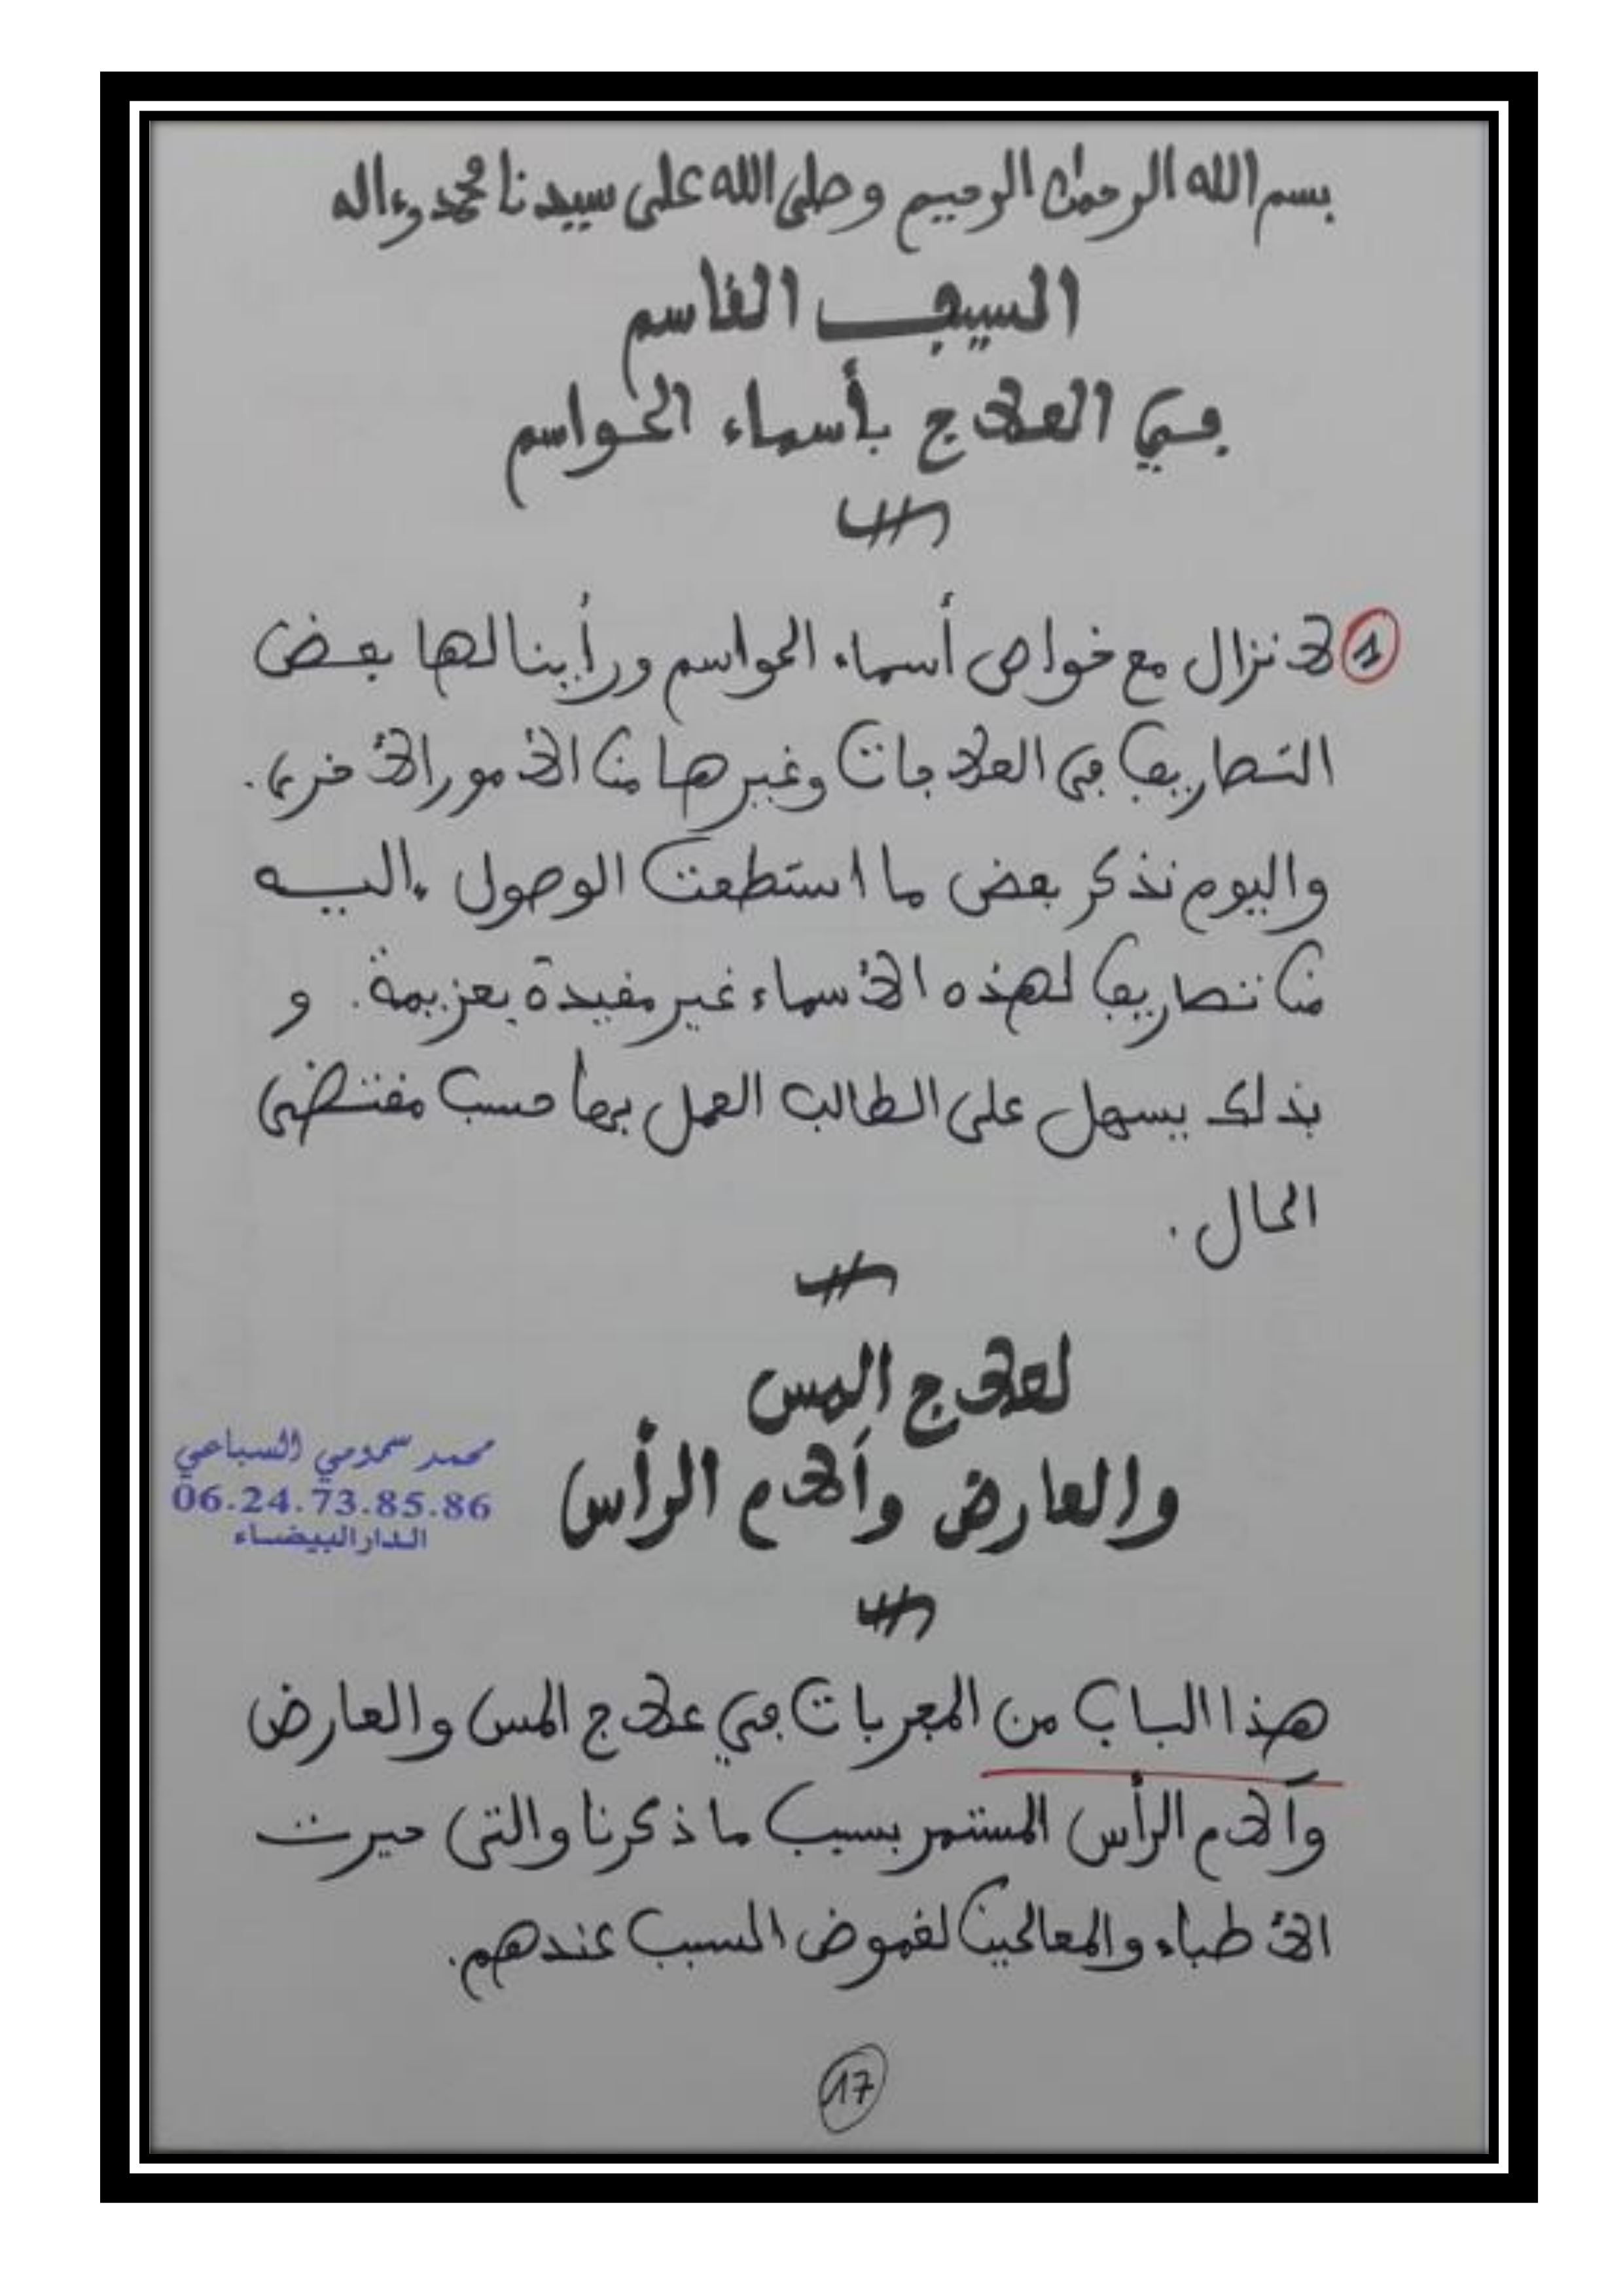 بسم الله الرحمان الرحيم وصلى الله على سيدنا محمد وءاله
السيف القاسم
في العلاج بأسماء الحواسم
① لا نزال مع خواص أسماء الحواسم ورأينا لها بعض
التصاريف في العلاجات وغيرها من الأمور الأخرى.
واليوم نذكر بعض ما استطعت الوصول إليه
من تصاريف لهذه الأسماء غير مقيدة بعزيمة. و
بذلك يسهل على الطالب العمل بها حسب مقتضى
الحال.
لعلاج المس
والعارض وآلام الرأس
محمد سمومي السباعي
06.24.73.85.86
الدار البيضاء
هذا الباب من المجربات في علاج المس والعارض
وآلام الرأس المستمر بسبب ما ذكرنا والتي حيرت
الأطباء والمعالجين لغموض السبب عندهم.
17